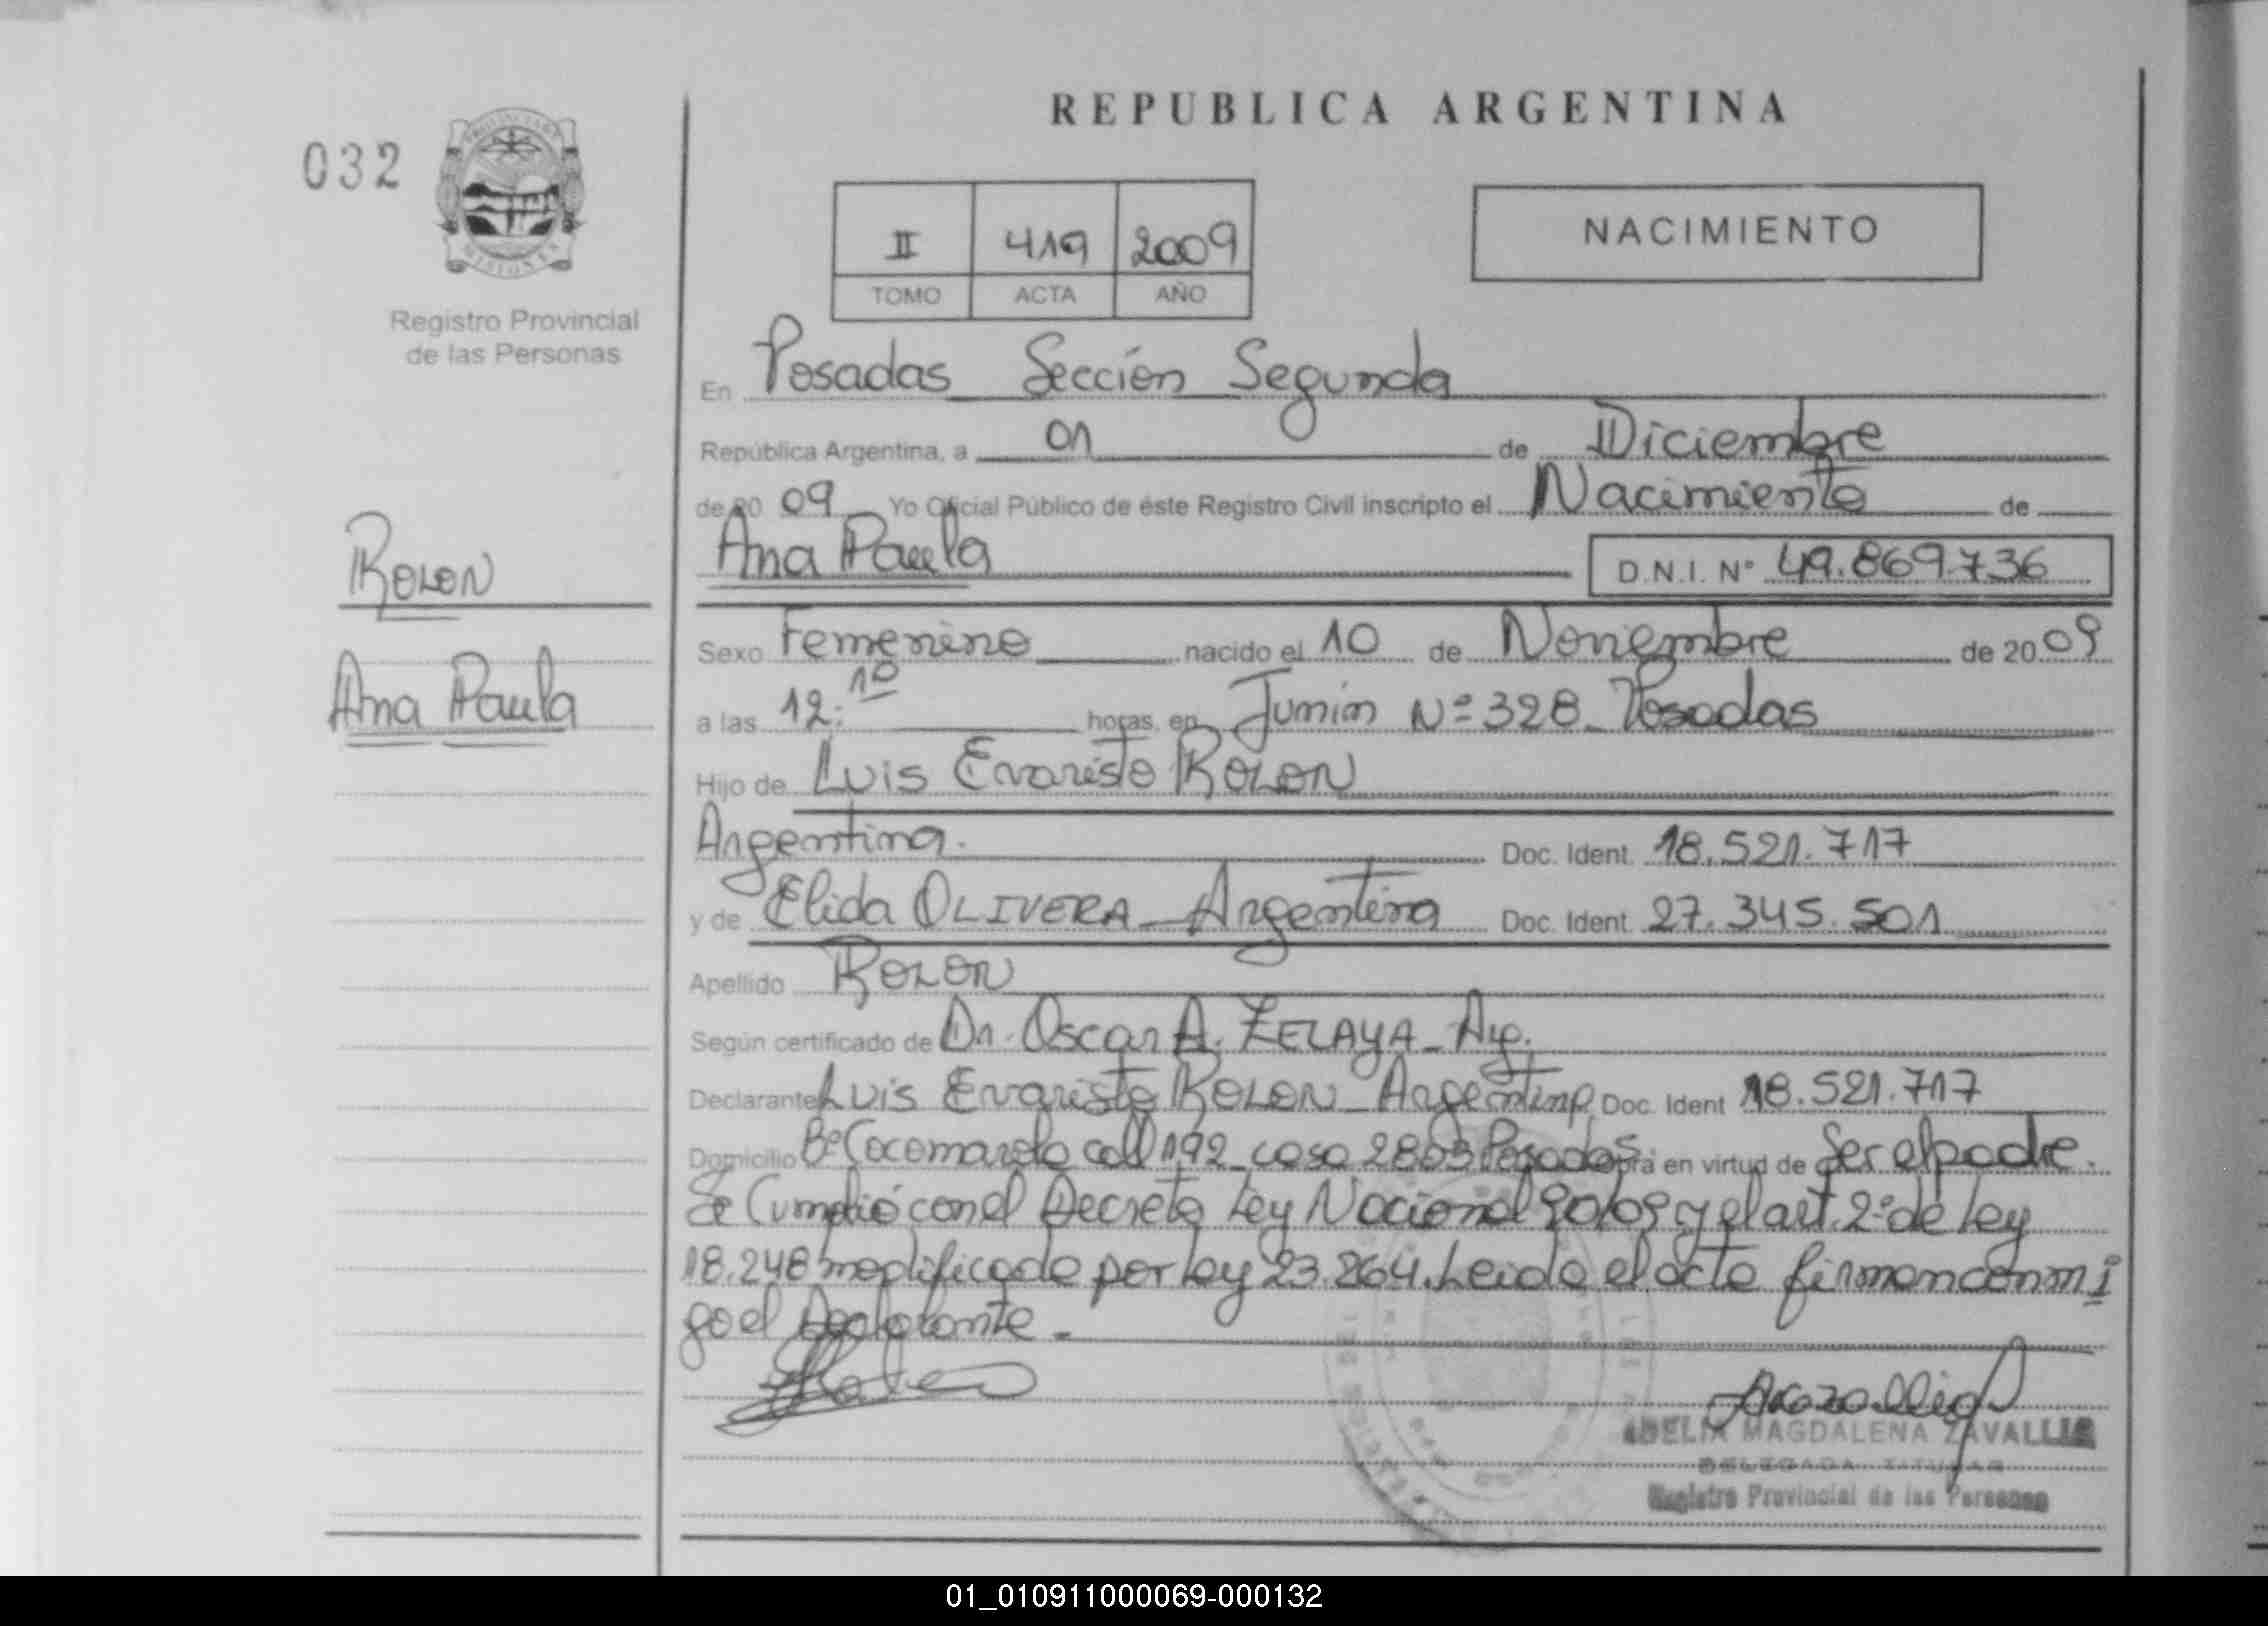 REPUBLICA ARGENTINA
032
NACIMIENTO
II 419 2009
TOMO ACTA AÑO
Registro Provincial
de las Personas
En Posadas Sección Segunda
República Argentina, a 01 de Diciembre
de 20 09 Yo Oficial Público de éste Registro Civil inscripto el Nacimiento de
Ana Paula D.N.I. Nº 49.869.736
ROLON
Ana Paula
Sexo Femenino nacido el 10 de Noviembre de 20 09
a las 12:10 horas, en Junín Nº 328 Posadas
Hijo de Luis Evaristo ROLON
Argentina. Doc. Ident. 18.521.717
y de Elida OLIVERA - Argentina Doc. Ident. 27.345.501
Apellido ROLON
Según certificado de Dr. Oscar A. ZELAYA - Arg.
Declarante Luis Evaristo ROLON - Argentina Doc. Ident 18.521.717
Domicilio Bº Cocomarola call 192 casa 2863 Posadas en virtud de Ser el padre.
Se Cumplió con el Decreto Ley Nacional 90/09 y el art. 2º de ley
18.248 modificado por ley 23.264. Leida el acta firman conmi
go el Declarante -
ADELIA MAGDALENA ZAVALLIA
DELEGADA TITULAR
Registro Provincial de las Personas
01_010911000069-000132